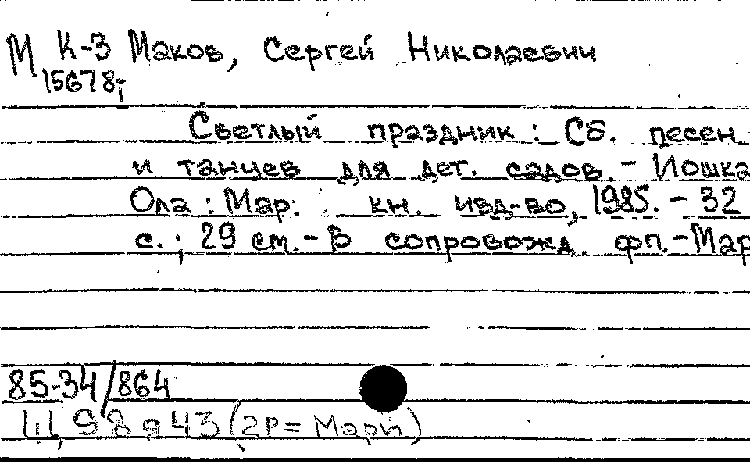 М К-3 Маков, Сергей Николаевич
15678;
Светлый праздник : Сб. песен
и танцев для дет. садов. - Йошка
Ола : Мар. кн. изд-во, 1985. - 32
с. ; 29 см. - В сопровожд. фп. - Мар
85-34/864
Щ 98 я 43 (2Р = Марий)